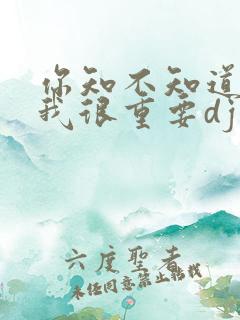 你知不知道
我很重要dj
六度圣者
未经同意禁止转载